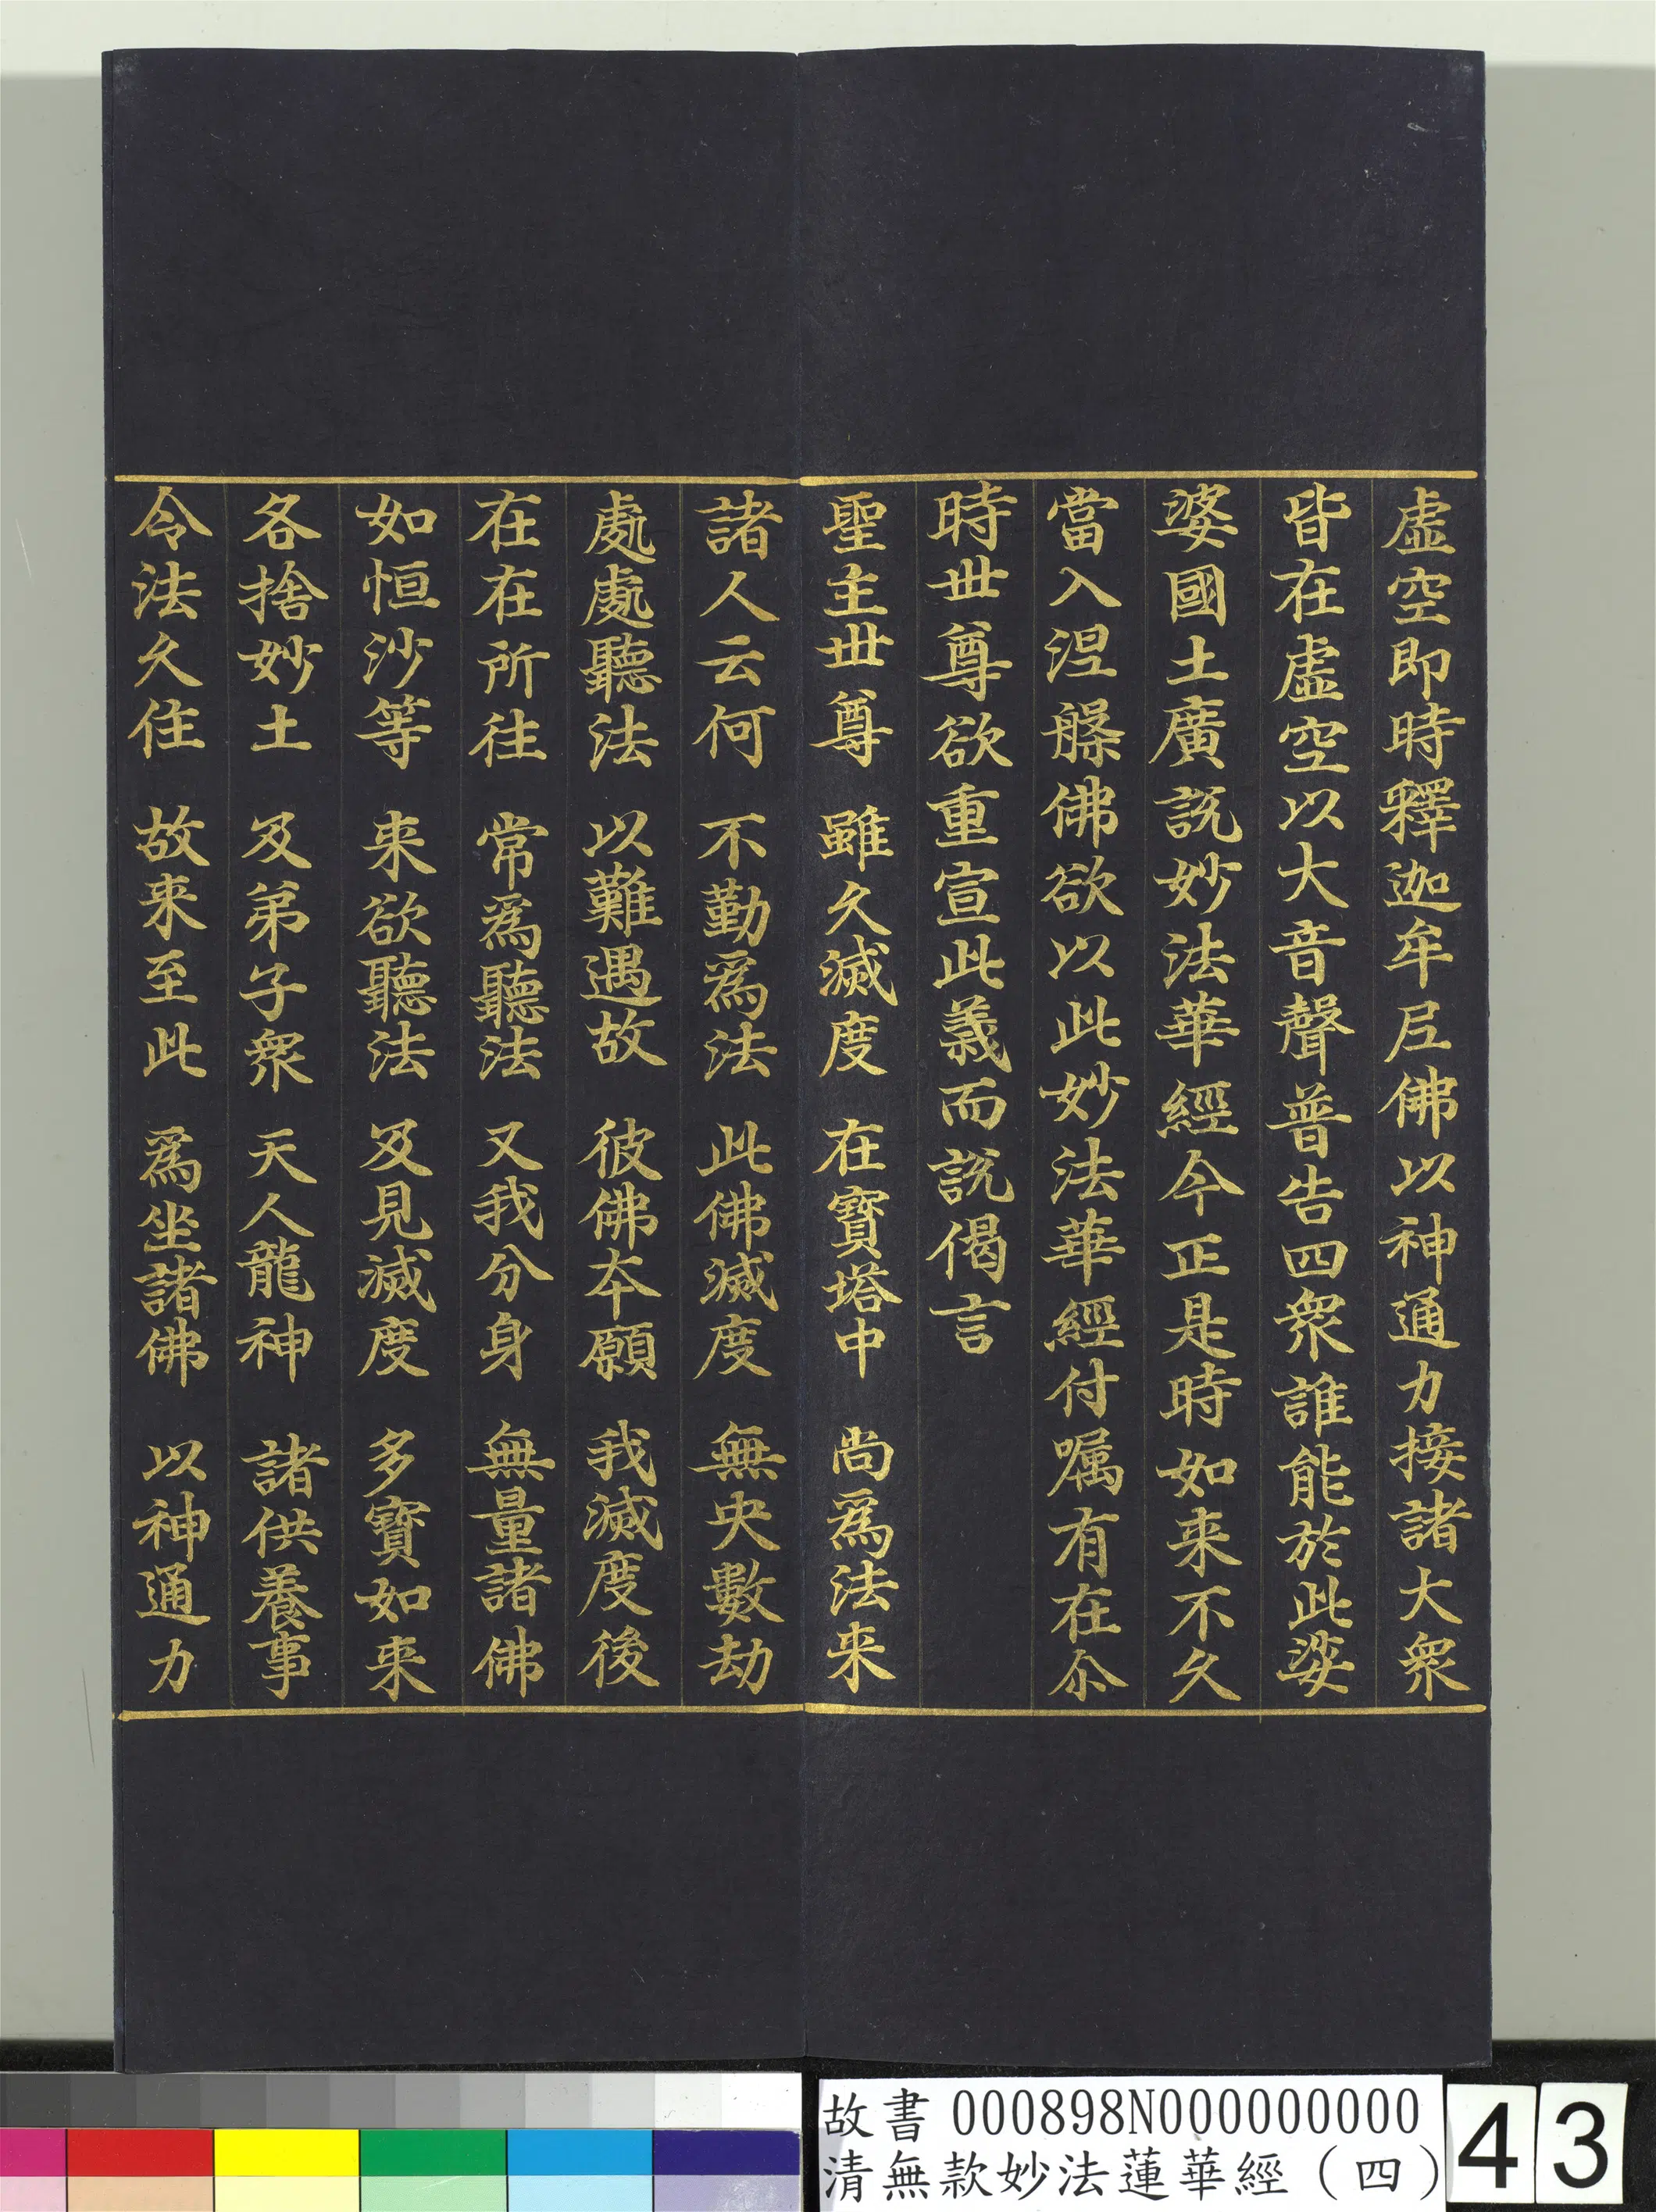 虛空即時釋迦牟尼佛以神通力接諸大衆
皆在虛空以大音聲普告四衆誰能於此娑
婆國土廣說妙法華經今正是時如来不久
當入涅槃佛欲以此妙法華經付嘱有在尒
時世尊欲重宣此義而說偈言
聖主世尊　雖久滅度　在寶塔中　尚爲法来
諸人云何　不勤爲法　此佛滅度　無央數劫
處處聽法　以難遇故　彼佛本願　我滅度後
在在所往　常爲聽法　又我分身　無量諸佛
如恒沙等　来欲聽法　及見滅度　多寶如来
各捨妙土　及弟子衆　天人龍神　諸供養事
令法久住　故来至此　爲坐諸佛　以神通力
故書 000898N000000000
清無款妙法蓮華經（四）
43